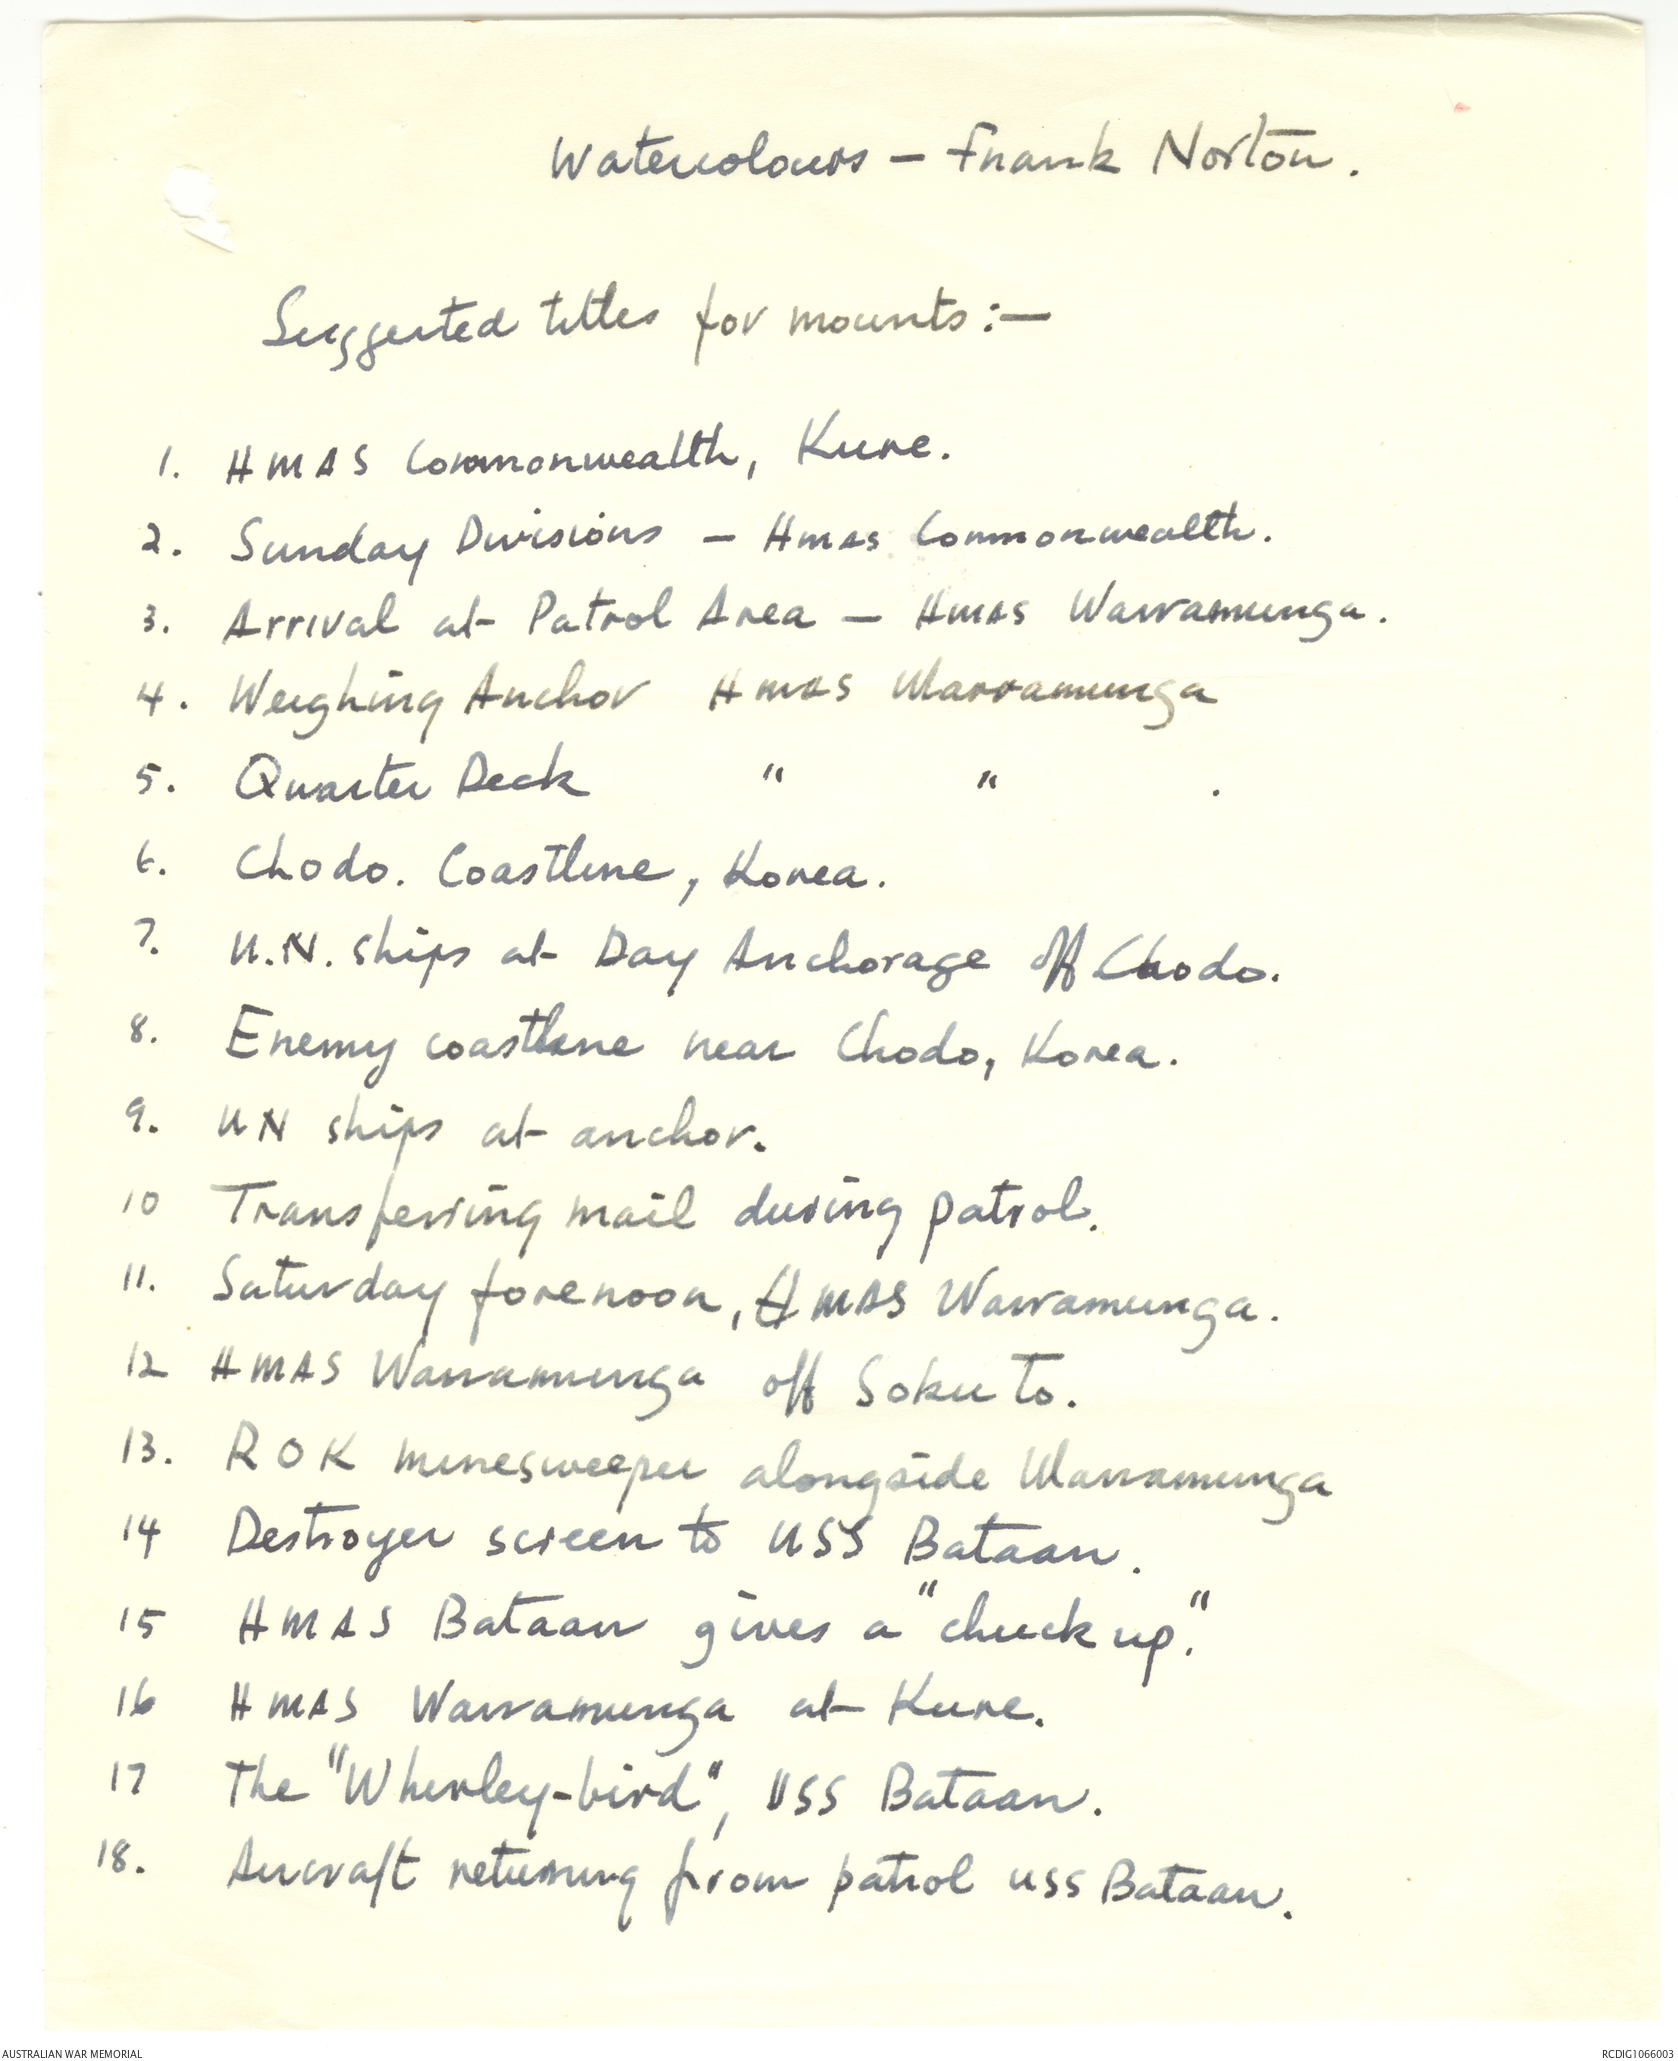 Watercolours - Frank Norton.
Suggested titles for mounts:-
1. HMAS Commonwealth, Kure.
2. Sunday Divisions - HMAS Commonwealth.
3. Arrival at Patrol Area - HMAS Warramunga.
4. Weighing Anchor HMAS Warramunga
5. Quarter Deck " " .
6. Chodo. Coastline, Korea.
7. U.N. ships at Day Anchorage off Chodo.
8. Enemy coastline near Chodo, Korea.
9. UN ships at anchor.
10 Transferring mail during patrol.
11. Saturday forenoon, HMAS Warramunga.
12 HMAS Warramunga off Sokuto.
13. ROK minesweeper alongside Warramunga
14 Destroyer screen to USS Bataan.
15 HMAS Bataan gives a "check up."
16 HMAS Warramunga at Kure.
17 The "Whirley-bird", USS Bataan.
18. Aircraft returning from patrol USS Bataan.
AUSTRALIAN WAR MEMORIAL
RCDIG1066003